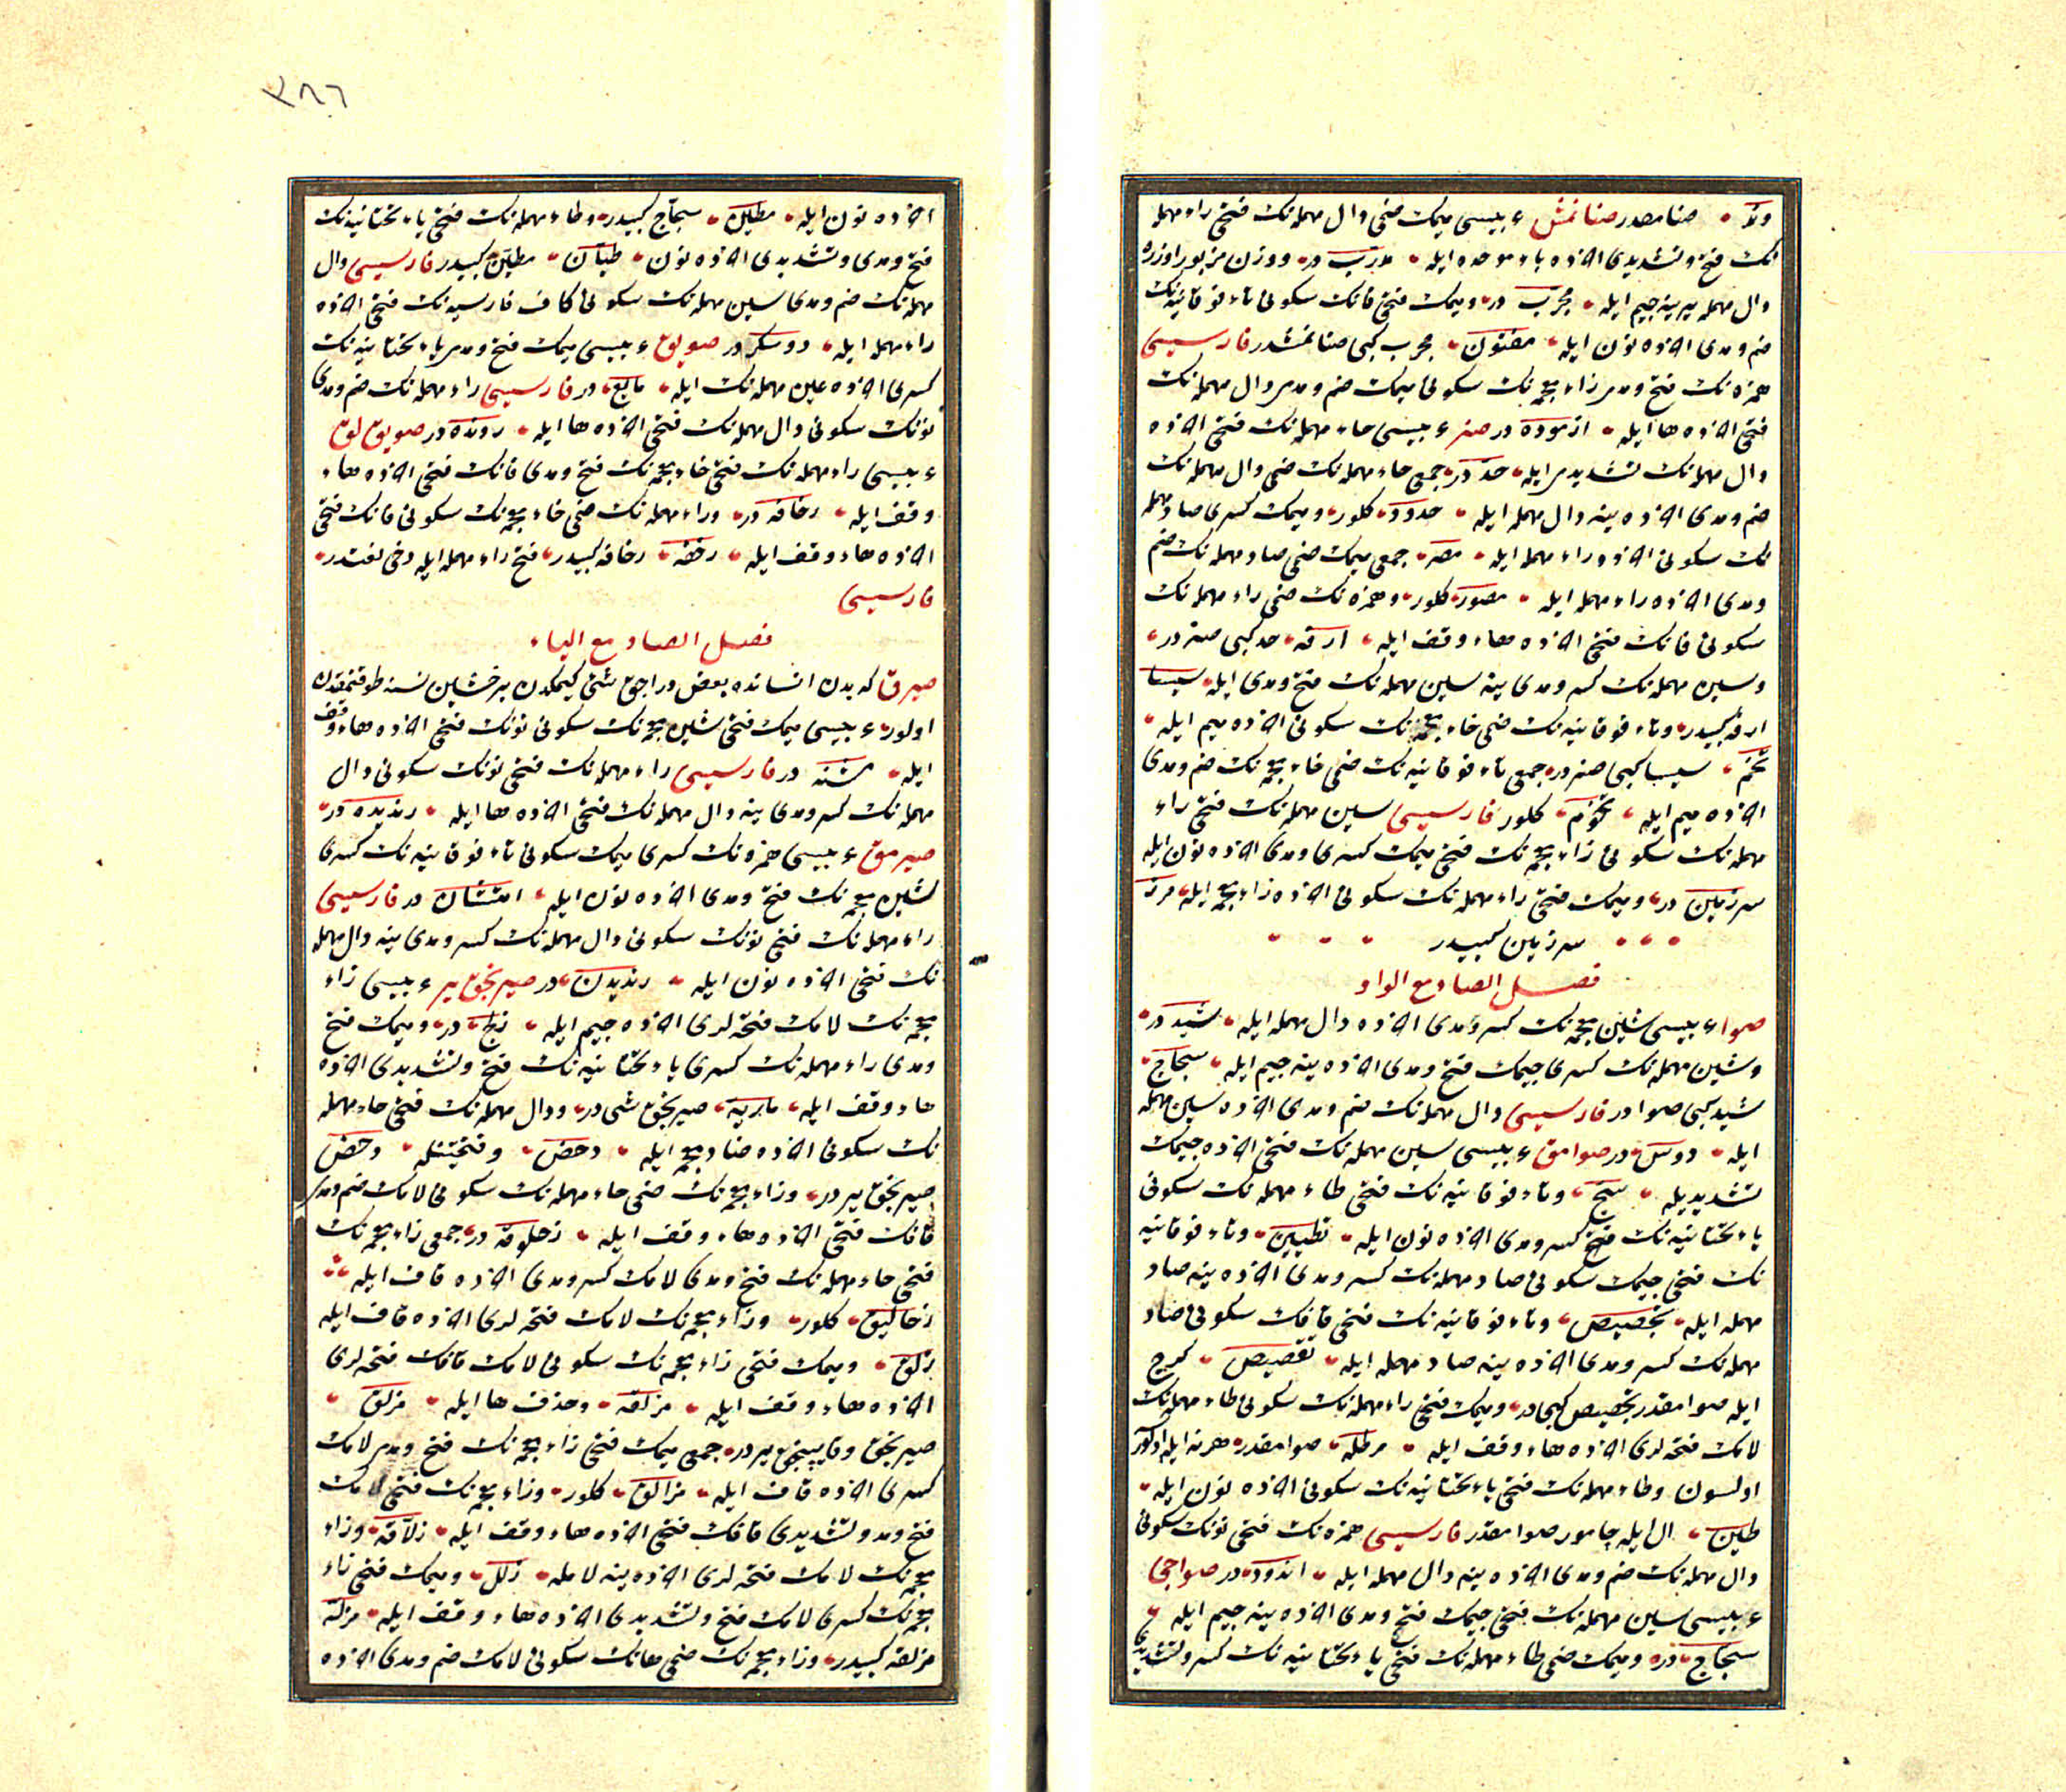 ولاّ صنا مصدر صنانمش ء بیسی میمك ضمی دال مهمله‌نك فتحی راء مهمله
نك فتح و تشدیدی اخرده باء موحده ایله مدرّب در ووزن مزبور اوزره
دال مهمله یرینه جیم ایله مجرّب در ومیمك فتحی فانك سکونی تاء فوقانیه‌نك
ضم ومدی اخرده نون ایله مفتون مجرب کبی صنانمشدر فارسیسی
همزه‌نك فتح ومدی زاء معجمه‌نك سکونی میمك ضم ومدی دال مهمله‌نك
فتحی اخرده ها ایله ازموده در صنر ء بیسی حاء مهمله‌نك فتحی اخرده
دال مهمله‌نك تشدیدی ایله حدّ در جمعی حاء مهمله‌نك ضمی دال مهمله‌نك
ضم ومدی اخرده ینه دال مهمله ایله حدود کلور ومیمك کسری صاد مهمله
نك سکونی اخرده راء مهمله ایله مصر جمعی میمك ضمی صاد مهمله‌نك ضم
ومدی اخرده راء مهمله ایله مصور کلور وهمزه‌نك ضمی راء مهمله‌نك
سکونی فانك فتحی اخرده هاء وقف ایله ارفه حد کبی صنر در
وسین مهمله‌نك کسر ومدی ینه سین مهمله‌نك فتح ومدی ایله سیسا
ارفه کبیدر وتاء فوقانیه‌نك ضمی خاء معجمه‌نك سکونی اخرده میم ایله
تخم سیسا کبی صنر در جمعی تاء فوقانیه‌نك ضمی خاء معجمه‌نك ضم ومدی
اخرده میم ایله تخوم کلور فارسیسی سین مهمله‌نك فتحی راء
مهمله‌نك سکونی زاء معجمه‌نك فتحی میمك کسری ومدی اخرده نون ایله
سرزمین در ومیمك فتحی راء مهمله‌نك سکونی اخرده زاء معجمه ایله مرز
سرزمین کبیدر
فصل الصاد مع الواو
صوا ء بیسی شین معجمه‌نك کسر ومدی اخرده دال مهمله ایله شید در
وسین مهمله‌نك کسری جیمك فتح ومدی اخرده ینه جیم ایله سجاج
شید کبی صوا در فارسیسی دال مهمله‌نك ضم ومدی اخرده سین مهمله
ایله دوس در صوامق ء بیسی سین مهمله‌نك فتحی اخرده جیمك
تشدیدیله سجّ وتاء فوقانیه‌نك فتحی طاء مهمله‌نك سکونی
یاء تحتانیه‌نك کسر ومدی اخرده نون ایله تطیین وتاء فوقانیه
نك فتحی جیمك سکونی صاد مهمله‌نك کسر ومدی اخرده ینه صاد
مهمله ایله تجصیص وتاء فوقانیه‌نك فتحی قافك سکونی صاد
مهمله‌نك کسر ومدی اخرده ینه صاد مهمله ایله تقصیص کرج
ایله صوامقدر تجصیص کبی در ومیمك فتحی راء مهمله‌نك سکونی طاء مهمله‌نك
لامك فتحه‌لری اخرده هاء وقف ایله مرطله صوامقدر هر نه ایله اولور
اولسون وطاء مهمله‌نك فتحی یاء تحتانیه‌نك سکونی اخرده نون ایله
طین ال ایله چامور صوامقدر فارسیسی همزه‌نك فتحی نونك سکونی
دال مهمله‌نك ضم ومدی اخرده ینه دال مهمله ایله اندود در صواجی
ء بیسی سین مهمله‌نك فتحی جیمك فتح ومدی اخرده ینه جیم ایله
سجّاج در ومیمك ضمی طاء مهمله‌نك فتحی یاء تحتانیه‌نك کسر وتشدیدی
٢٨٦
اخرده نون ایله مطیّن سجاج کبیدر وطاء مهمله‌نك فتحی یاء تحتانیه‌نك
فتح ومدی وتشدیدی اخرده نون طیّان مطین کبیدر فارسیسی دال
مهمله‌نك ضم ومدی سین مهمله‌نك سکونی کاف فارسیه‌نك فتحی اخرده
راء مهمله ایله دوسکر در صویوق ء بیسی میمك فتح ومدی یاء تحتانیه‌نك
کسری اخرده عین مهمله‌نك ایله مایع در فارسیسی راء مهمله‌نك ضم ومدی
نونك سکونی دال مهمله‌نك فتحی اخرده ها ایله رونده در صویوق لوق
ء بیسی راء مهمله‌نك فتحی خاء معجمه‌نك فتح ومدی فانك فتحی اخرده هاء
وقف ایله رخافه در وراء مهمله‌نك ضمی خاء معجمه‌نك سکونی فانك فتحی
اخرده هاء وقف ایله رخفه رخافه کبیدر فتح راء مهمله ایله دخی لغتدر
فارسیسی
فصل الصاد مع الیاء
صیرق که بدن انسانده بعض دراجق شئی کیمکدن یر خشین نسنه طوقنمقدن
اولور ء بیسی میمك فتحی شین معجمه‌نك سکونی نونك فتحی اخرده هاء وقف
ایله مشنه در فارسیسی راء مهمله‌نك فتحی نونك سکونی دال
مهمله‌نك کسر ومدی ینه دال مهمله‌نك فتحی اخرده ها ایله رندیده در
صیرمق ء بیسی همزه‌نك کسری میمك سکونی تاء فوقانیه‌نك کسری
شین معجمه‌نك فتح ومدی اخرده نون ایله امتشان در فارسیسی
راء مهمله‌نك فتحی نونك سکونی دال مهمله‌نك کسر ومدی ینه دال مهمله
نك فتحی اخرده نون ایله رندیدن در صیرنجق یر ء بیسی زاء
معجمه‌نك لامك فتحه‌لری اخرده جیم ایله زلج در ومیمك فتح
ومدی راء مهمله‌نك کسری یاء تحتانیه‌نك فتح وتشدیدی اخرده
هاء وقف ایله ماریّه صیرنجق شی در ودال مهمله‌نك فتحی حاء مهمله
نك سکونی اخرده ضاد معجمه ایله دحض وفتحتینله دحض
صیرنجق یر در وزاء معجمه‌نك ضمی حاء مهمله‌نك سکونی لامك ضم ومدی
قافك فتحی اخرده هاء وقف ایله زحلوقه در جمعی زاء معجمه‌نك
فتحی حاء مهمله‌نك فتح ومدی لامك کسر ومدی اخرده قاف ایله
زحالیق کلور وزاء معجمه‌نك لامك فتحه‌لری اخرده قاف ایله
زلق ومیمك فتحی زاء معجمه‌نك سکونی لامك قافك فتحه‌لری
اخرده هاء وقف ایله مزلقه وحذف ها ایله مزلق
صیرنجق وقایپنجق یر در جمعی میمك فتحی زاء معجمه‌نك فتح ومدی لامك
کسری اخرده قاف ایله مزالق کلور وزاء معجمه‌نك فتحی لامك
فتح ومد وتشدیدی قافك فتحی اخرده هاء وقف ایله زلّاقه وزاء
معجمه‌نك لامك فتحه‌لری اخرده ینه لامله زلل ومیمك فتحی زاء
معجمه‌نك کسری لامك فتح وتشدیدی اخرده هاء وقف ایله مزلّه
مزلقه کبیدر وزاء معجمه‌نك ضمی هانك سکونی لامك ضم ومدی اخرده